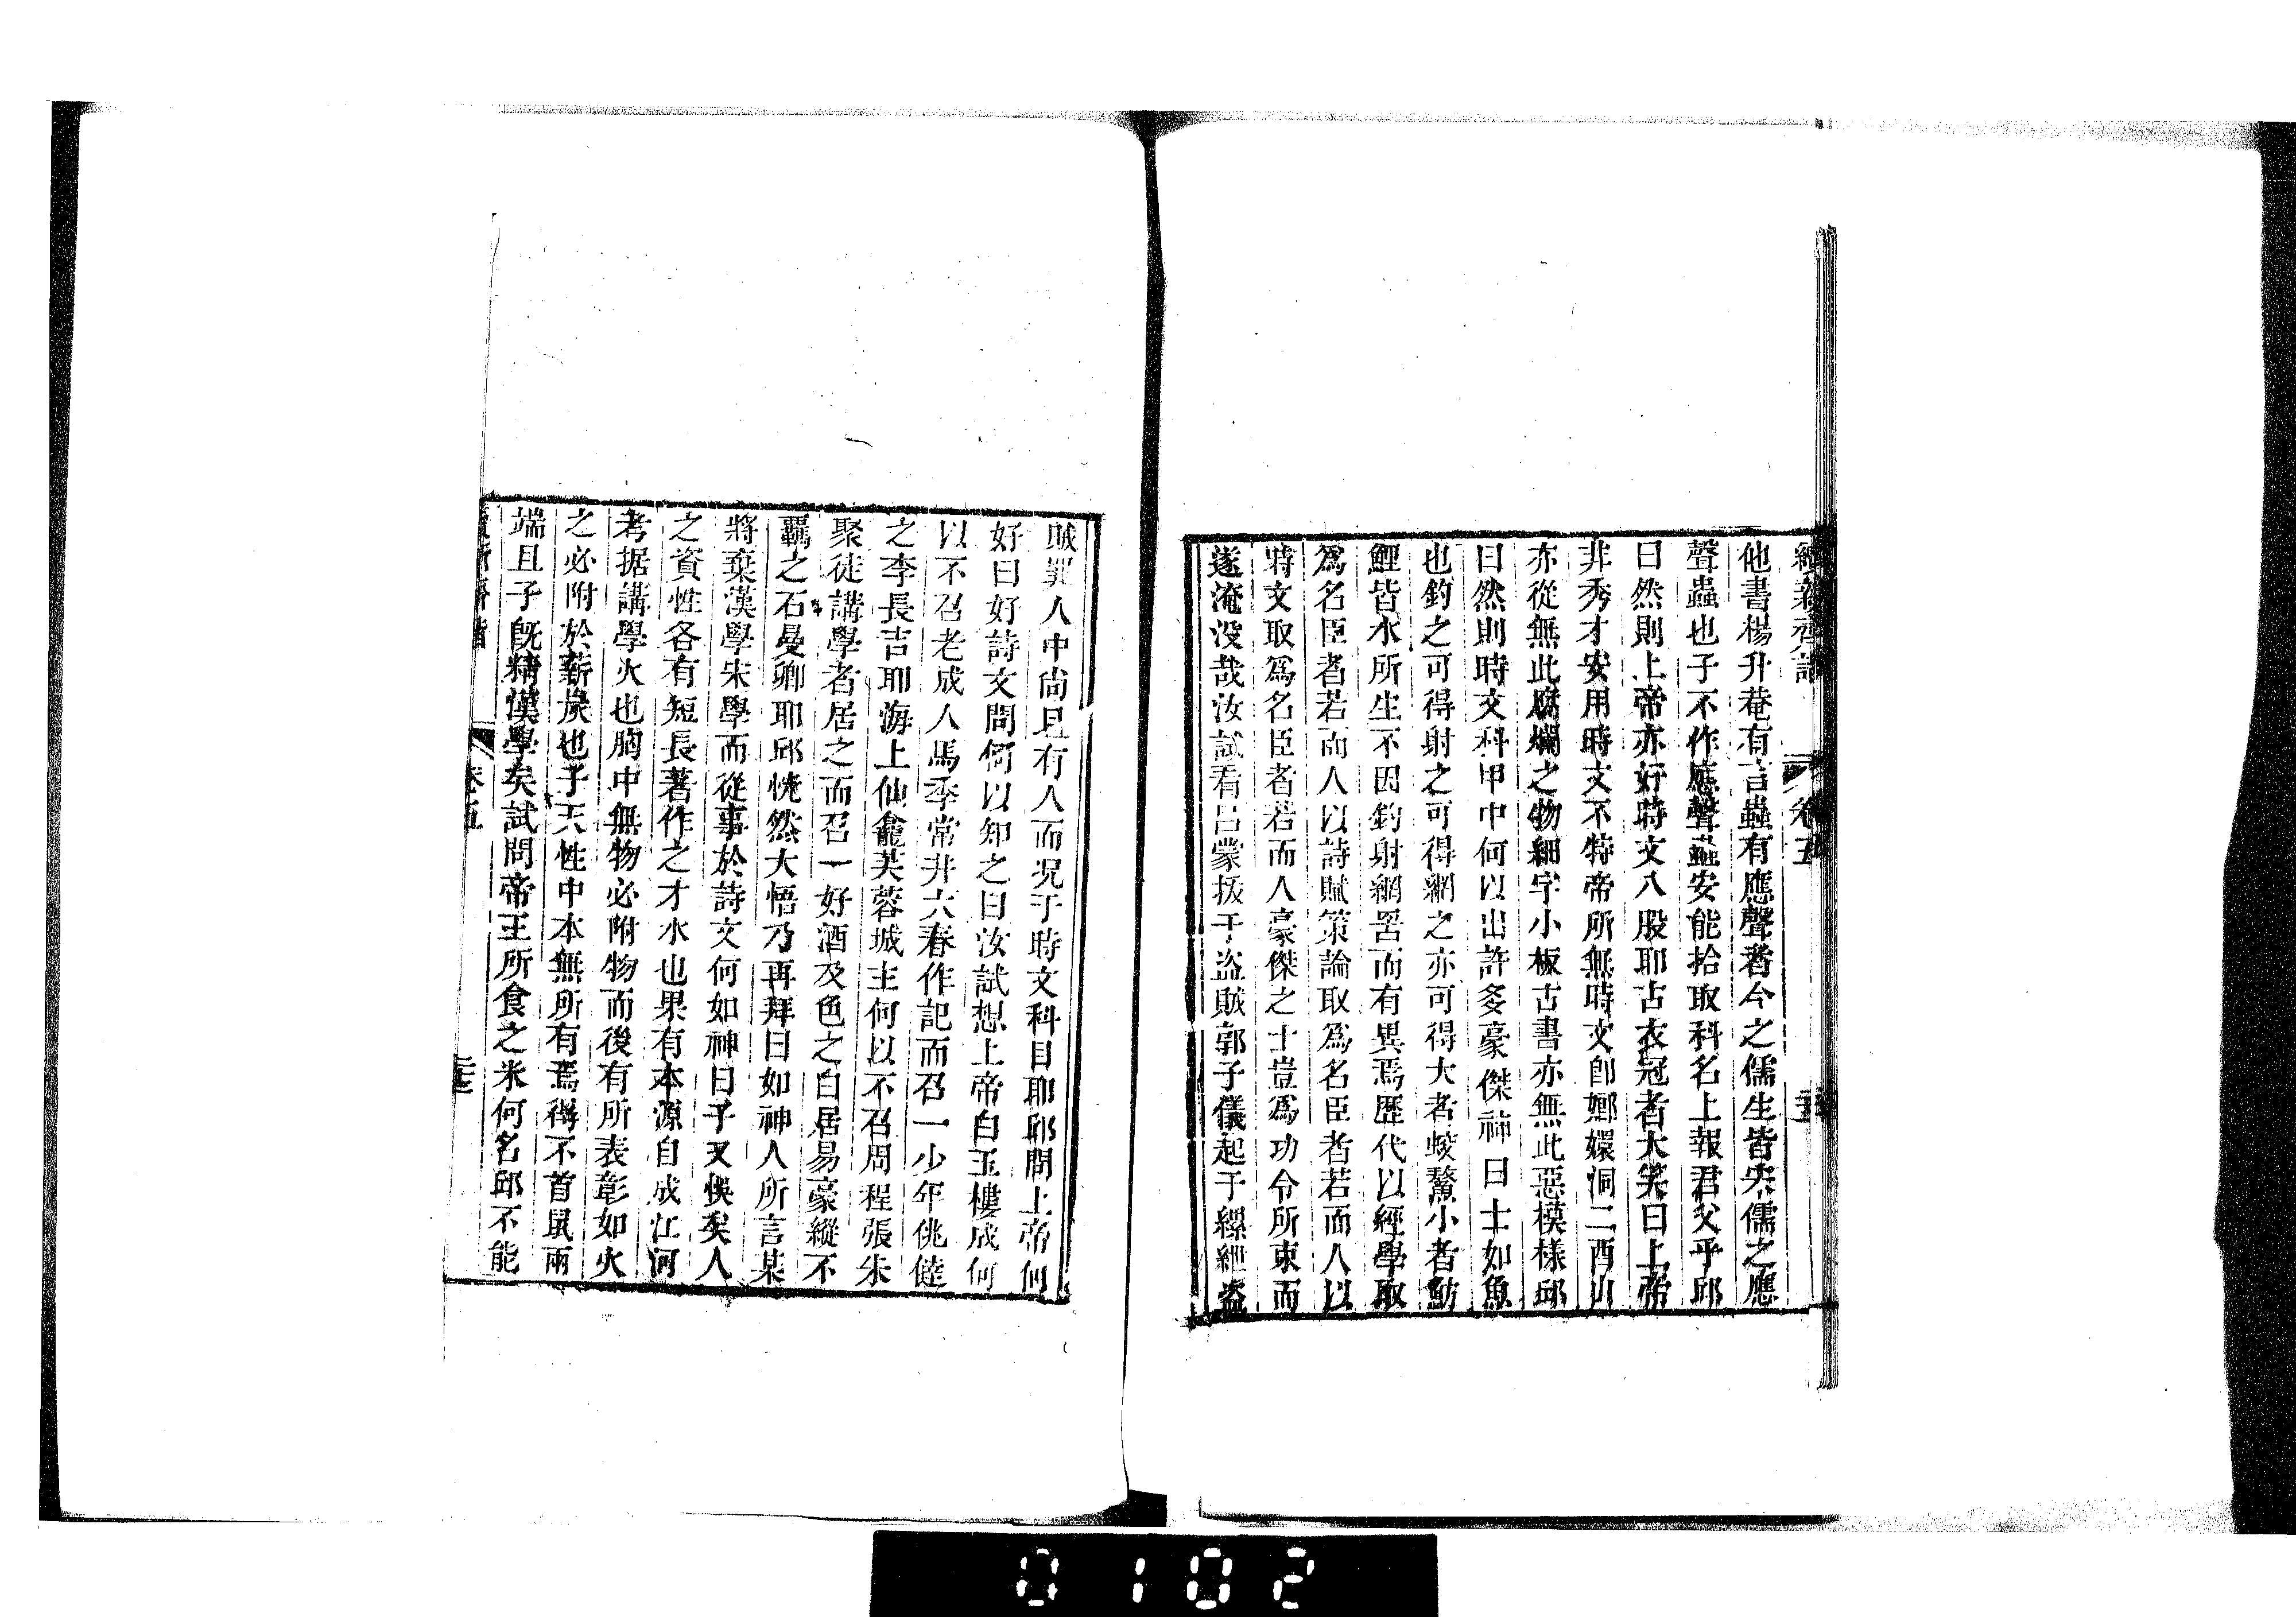 續新齊諧 卷五
他書楊升菴有言蟲有應聲者今之儒生皆宋儒之應
聲蟲也子不作應聲蟲安能拾取科名上報君父乎邱
曰然則上帝亦好時文八股耶古衣冠者大笑曰上帝
非秀才安用時文不特帝所無時文卽嫏嬛洞二酉山
亦從無此腐爛之物細字小板古書亦無此惡模樣邱
曰然則時文科甲中何以出許多豪傑神曰士如魚
也釣之可得射之可得網之亦可得大者蛟鰲小者魴
鯉皆水所生不因釣射網罟而有異焉歷代以經學取
爲名臣者若而人以詩賦策論取爲名臣者若而人以
時文取爲名臣者若而人豪傑之士豈爲功令所束而
遂淹没哉汝試看呂蒙拔于盜賊郭子儀起于縲絏盜
賊罪人中尚且有人而況于時文科目耶邱問上帝何
好曰好詩文問何以知之曰汝試想上帝白玉樓成何
以不召老成人馬季常井大春作記而召一少年佻健
之李長吉耶海上仙龕芙蓉城主何以不召周程張朱
聚徒講學者居之而召一好酒及色之白居易豪縱不
羈之石曼卿耶邱恍然大悟乃再拜曰如神人所言某
將棄漢學宋學而從事於詩文何如神曰子又悞矣人
之資性各有短長著作之才水也果有本源自成江河
考据講學火也胸中無物必附物而後有所表彰如火
之必附於薪炭也子天性中本無所有焉得不首鼠兩
端且子旣精漢學矣試問帝王所食之米何名邱不能
卷五
0102